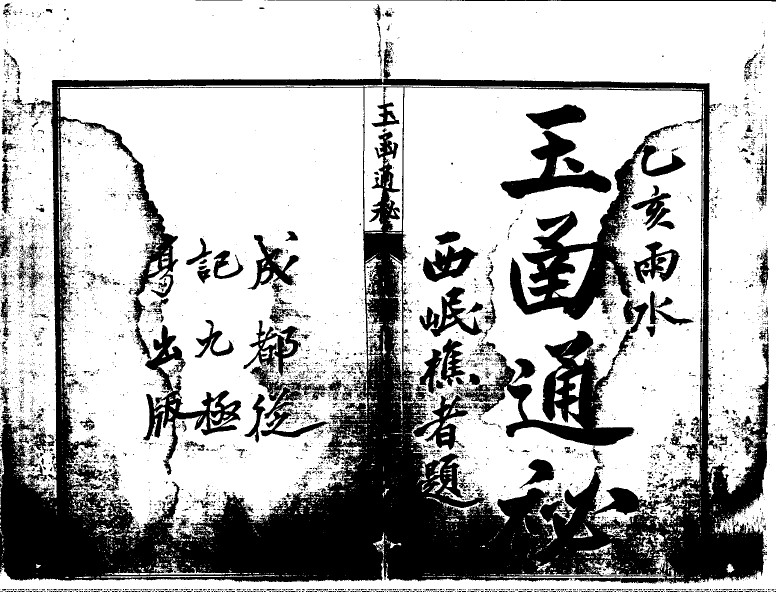 乙亥雨水
玉函通秘
西岷樵者題
玉函通秘
成都從
記九極
寫出版